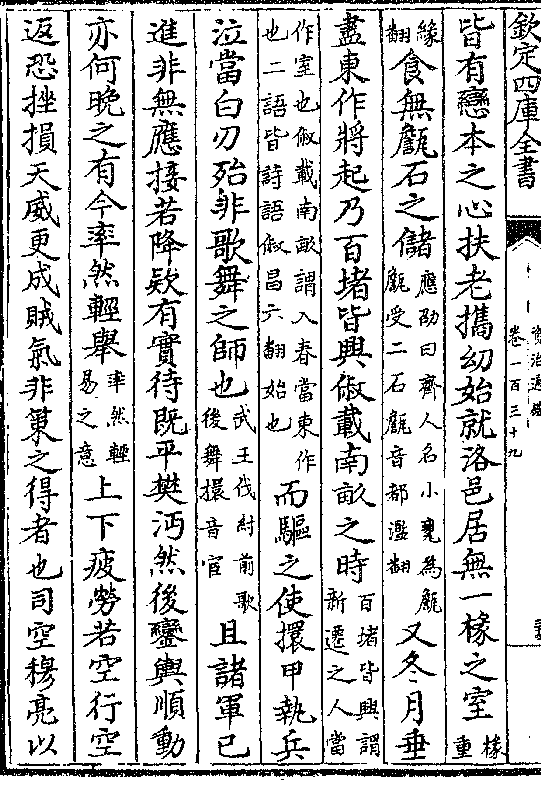 欽定四庫全書
資治通鑑
卷一百三十九
皆有戀本之心扶老攜幼始就洛邑居無一椽之室椽重
緣翻食無甔石之儲應劭曰齊人名小甕為甔甔受二石甔音都濫翻又冬月垂
盡東作將起乃百堵皆興俶載南畝之時百堵皆興謂新遷之人當
作室也俶載南畝謂入春當東作也二語皆詩語俶昌六翻始也而驅之使擐甲執兵
泣當白刃殆非歌舞之師也武王伐紂前歌後舞擐音宦且諸軍已
進非無應接若降欵有實待既平樊沔然後鑾輿順動
亦何晚之有今率然輕舉率然輕易之意上下疲勞若空行空
返恐挫損天威更成賊氣非策之得者也司空穆亮以